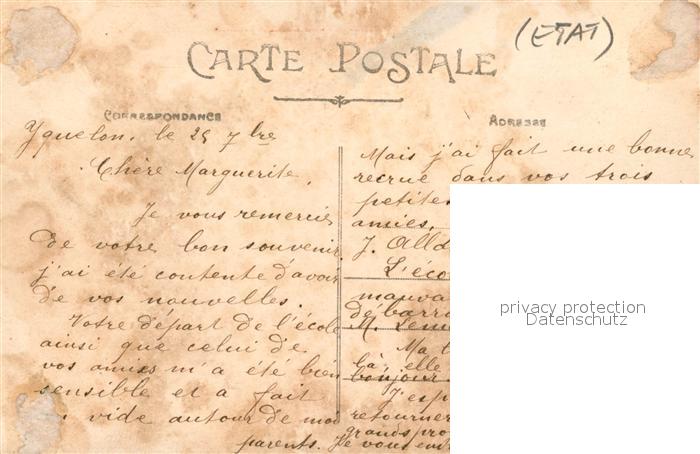 (ETAT)
CARTE POSTALE
CORRESPONDANCE
ADRESSE
Yquelon, le 25 7bre
Chère Marguerite,
Je vous remercie
de votre bon souvenir
j'ai été contente d'avoir
de vos nouvelles.
Votre départ de l'école
ainsi que celui de
vos amies m'a été bien
sensible et a fait
vide autour de moi
Mais j'ai fait une bonne
recrue dans vos trois
petites
amies,
J. Alld
L'éco
mauva
débarra
M. Lem
Ma t
là, elle
bonjour
J'esp
retourner
grands pro
parents. Je vous
privacy protection
Datenschutz